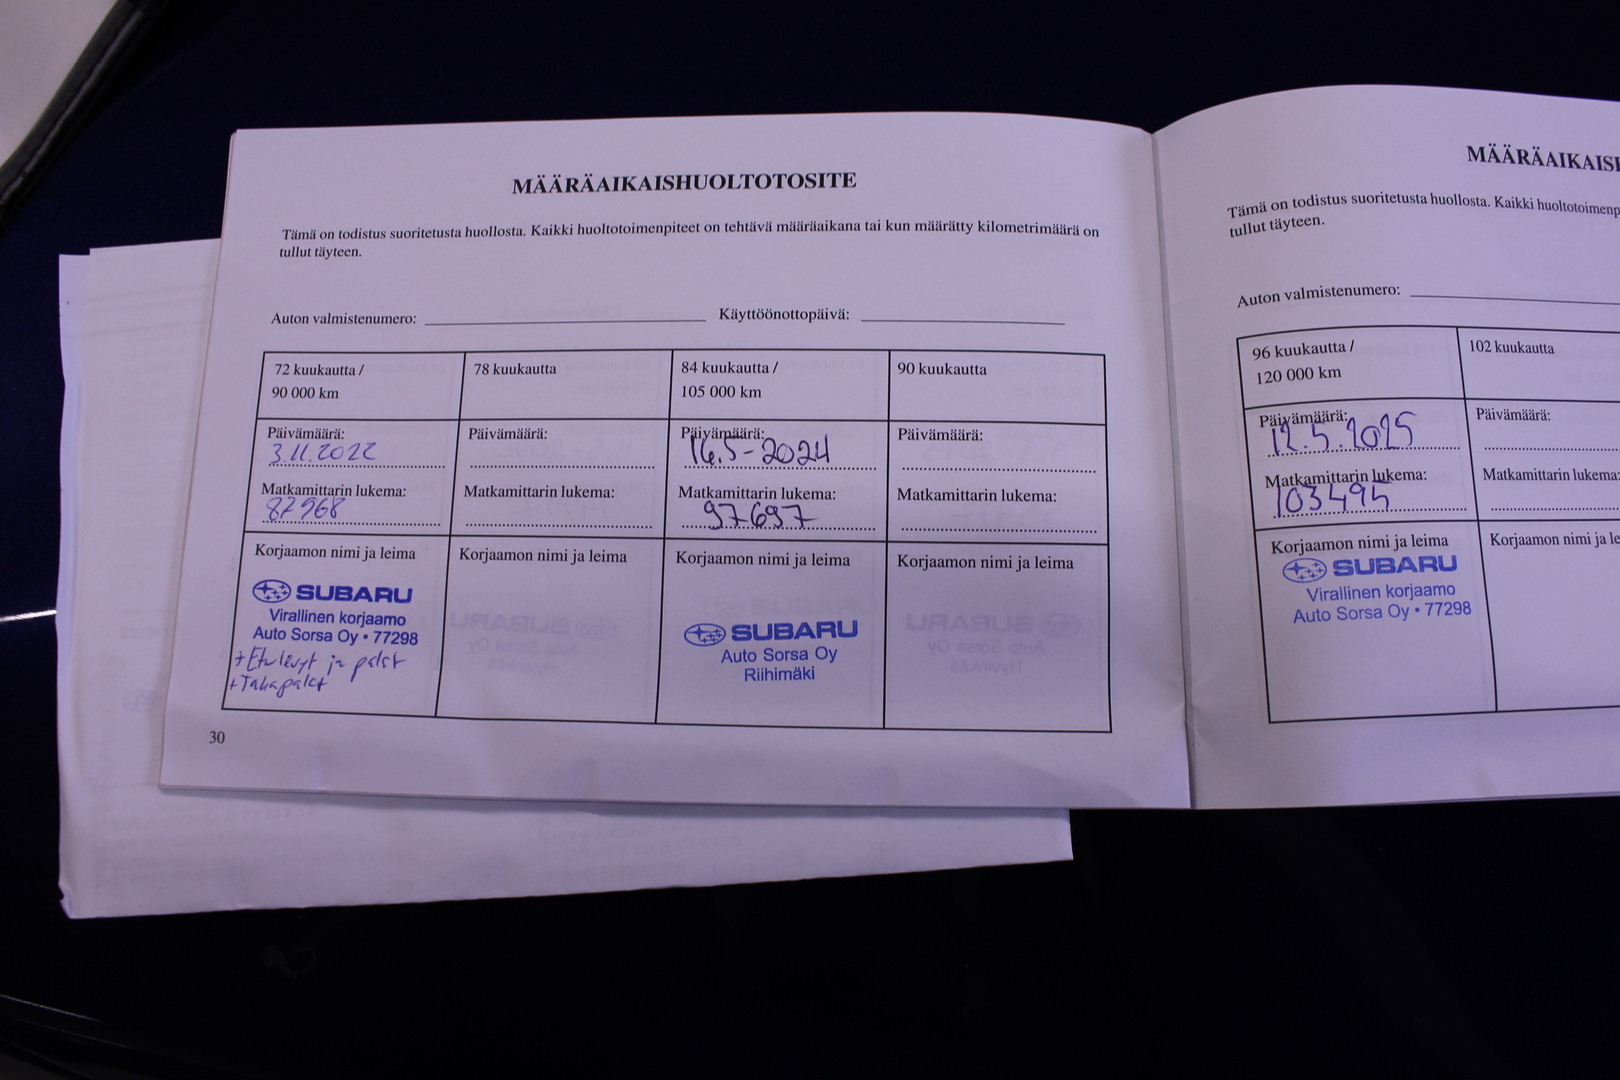 MÄÄRÄAIKAISHUOLTOTOSITE
Tämä on todistus suoritetusta huollosta. Kaikki huoltotoimenpiteet on tehtävä määräaikana tai kun määrätty kilometrimäärä on
tullut täyteen.
Auton valmistenumero: Käyttöönottopäivä:
72 kuukautta /
90 000 km
Päivämäärä:
3.11.2022
Matkamittarin lukema:
87968
Korjaamon nimi ja leima
SUBARU
Virallinen korjaamo
Auto Sorsa Oy • 77298
+ Etulevyt ja palat
+ Takapalat
78 kuukautta
Päivämäärä:
Matkamittarin lukema:
Korjaamon nimi ja leima
84 kuukautta /
105 000 km
Päivämäärä:
16.5-2024
Matkamittarin lukema:
97697
Korjaamon nimi ja leima
SUBARU
Auto Sorsa Oy
Riihimäki
90 kuukautta
Päivämäärä:
Matkamittarin lukema:
Korjaamon nimi ja leima
30
MÄÄRÄAIKAISH
Tämä on todistus suoritetusta huollosta. Kaikki huoltotoimenp
tullut täyteen.
Auton valmistenumero:
96 kuukautta /
120 000 km
Päivämäärä:
12.5.2025
Matkamittarin lukema:
103495
Korjaamon nimi ja leima
SUBARU
Virallinen korjaamo
Auto Sorsa Oy • 77298
102 kuukautta
Päivämäärä:
Matkamittarin lukema:
Korjaamon nimi ja le